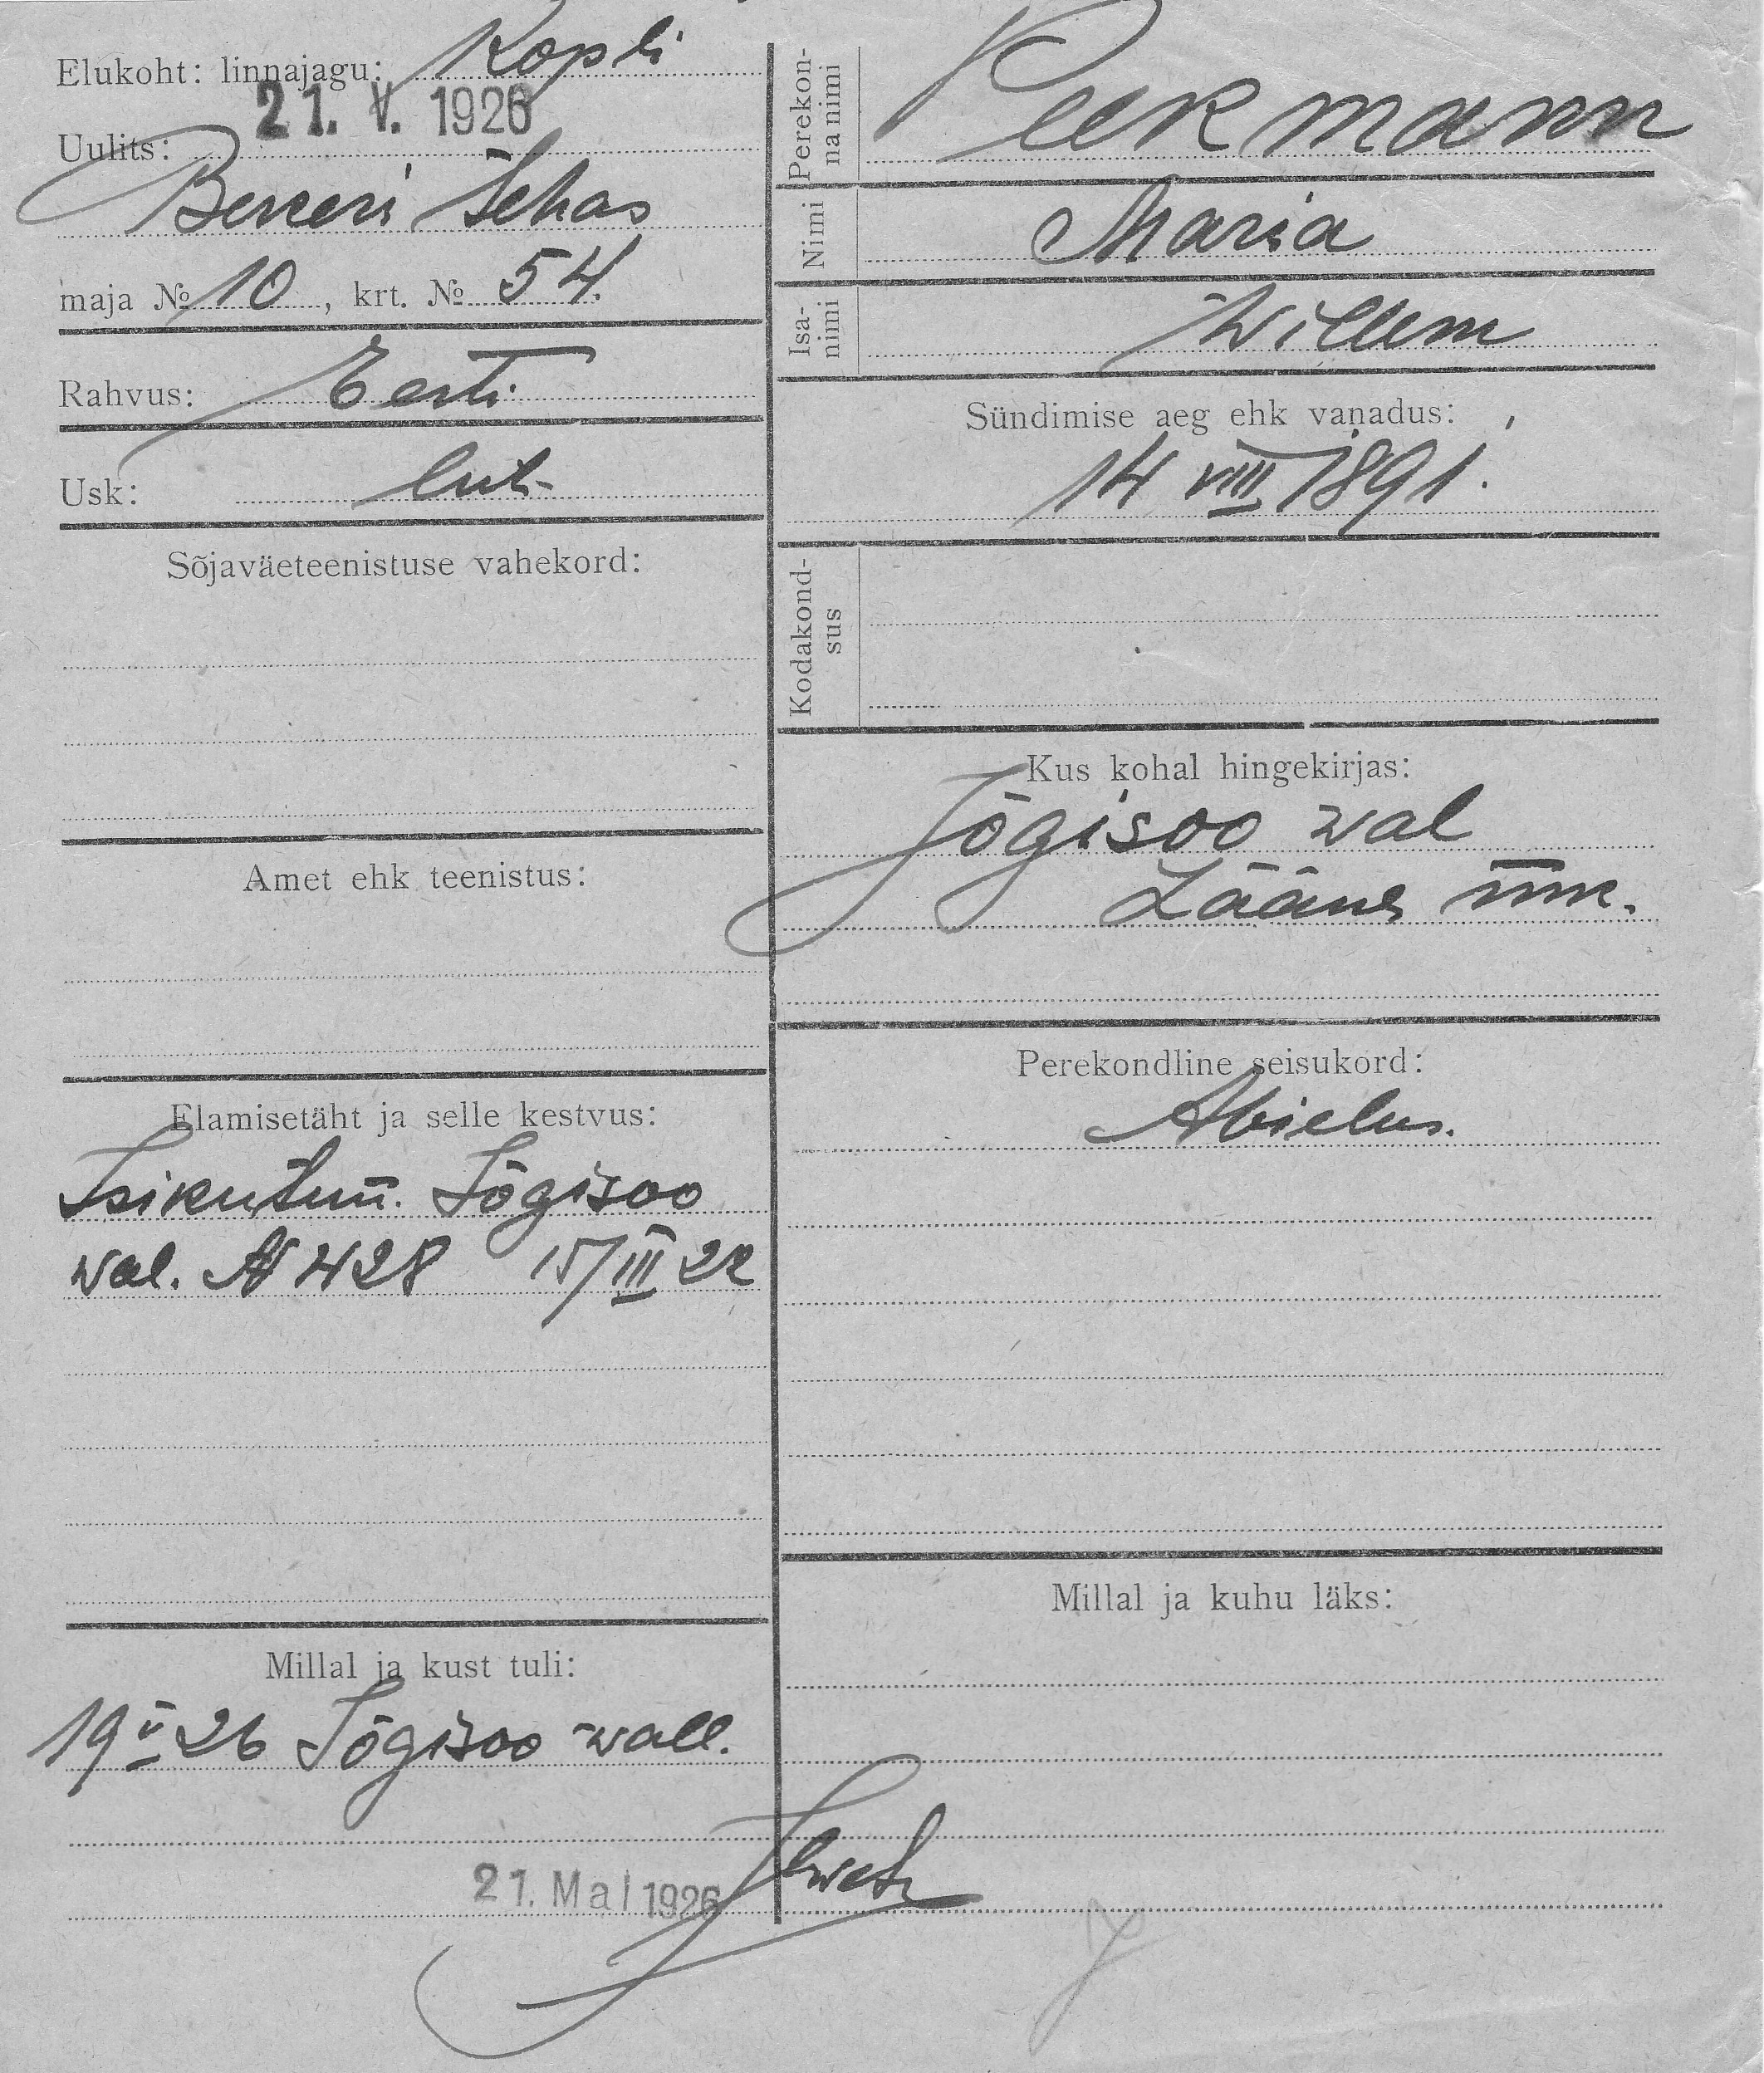 Elukoht: linnajagu: Kopli
21. V. 1926
Uulits:
Bekeri tehas
maja № 10, krt. № 54.
Rahvus: Eesti
Usk: lut.
Sõjaväeteenistuse vahekord:
Amet ehk teenistus:
Elamisetäht ja selle kestvus:
Isikutunn. Jõgisoo
wal. N 428 15/III 22
Millal ja kust tuli:
19 V 26 Jõgisoo wall.
21. Mai 1926
Perekonna nimi
Peekmann
Nimi Maria
Isanimi Willem
Sündimise aeg ehk vanadus:
14 VIII 1891.
Kodakondsus
Kus kohal hingekirjas:
Jõgisoo wal
Lääne mk.
Perekondline seisukord:
Abielus.
Millal ja kuhu läks: